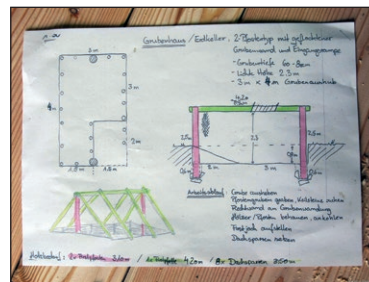 Grubenhaus / Erdkeller, 2-Pfostentyp mit geflochtener
Grubenwand und Eingangsrampe
- Grubentiefe 60-80cm
- Lichte Höhe 2.3m
- 3m x 4m Grubenaushub
2m
4m
3m
2m
1.8m
1.8m
4.20m
2.5m
2.5m
2.3
0.6m
0.6m
2m
3m
Arbeitsablauf: - Grube ausheben
Pfostengruben graben, Keilsteine
Flechtwand an Grubenwandung
Hölzer / Pfosten behauen, ankohlen
Firstjoch aufstellen
Dachsparren setzen
Holzbedarf: 2x Firstpfosten 3.10m / 1x Firstpfette 4.20m / 8x Dachsparren 3.50m